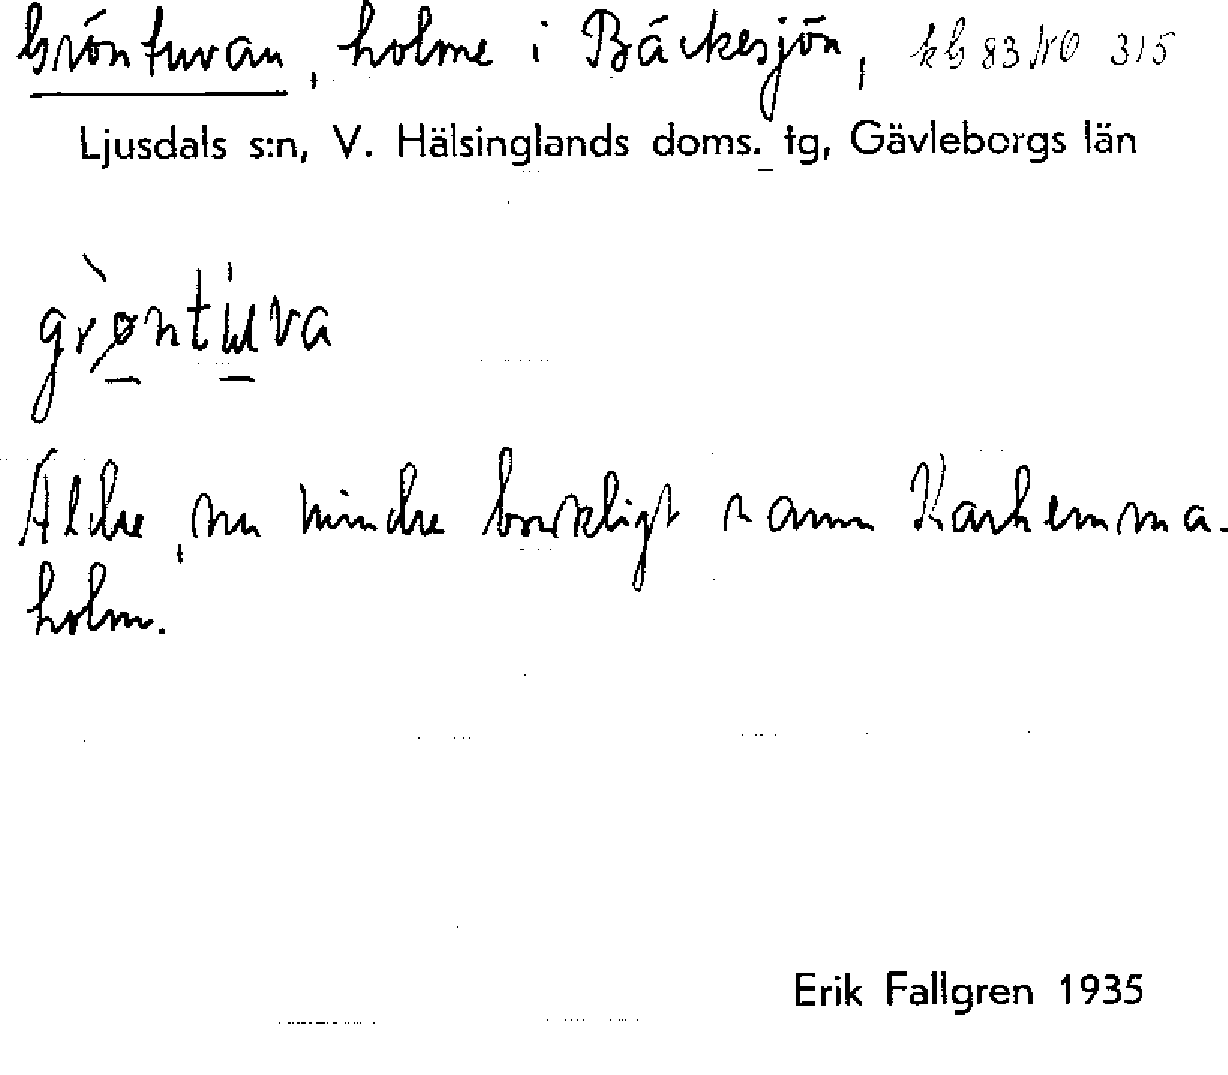 Gröntuvan, holme i Bäckesjön, kb 83 NO 315
Ljusdals s:n, V. Hälsinglands doms. tg, Gävleborgs län
grø̀ntʉ́va
Äldre, nu mindre brukligt namn Karhemma-
holm.
Erik Fallgren 1935